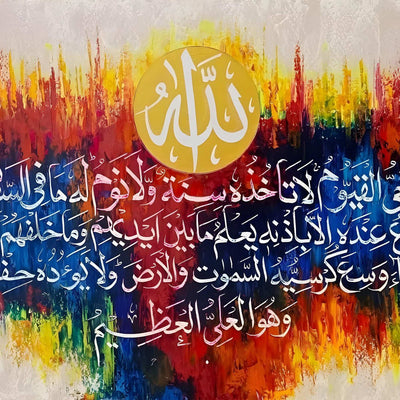 الله
الْقَيُّومُ لَا تَأْخُذُهُ سِنَةٌ وَّلَا نَوْمٌ لَهُ مَا فِي
عِنْدَهُ إِلَّا بِإِذْنِهِ يَعْلَمُ مَا بَيْنَ أَيْدِيهِمْ وَمَا خَلْفَهُمْ
وَسِعَ كُرْسِيُّهُ السَّمٰوٰتِ وَالْأَرْضَ وَلَا يَؤُدُهُ
وَهُوَ الْعَلِيُّ الْعَظِيمُ